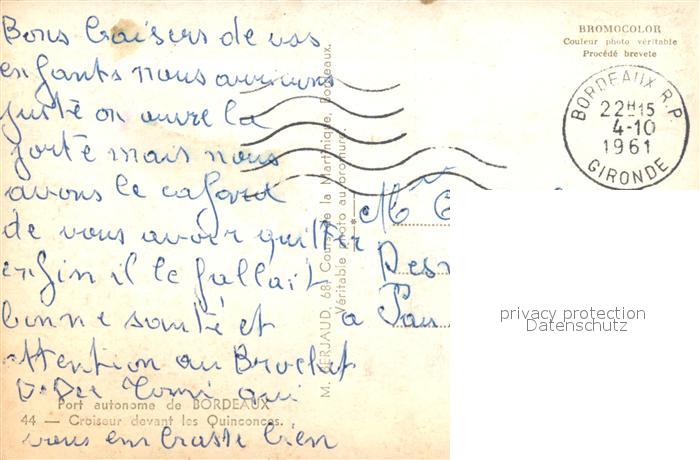 Bons baisers de vos
enfants nous arrivons
juste on ouvre la
porte mais nous
avons le cafard
de vous avoir quitter
enfin il le fallait
bonne santé et
attention au Brochet
qui
vous embrasse bien
Port autonome de BORDEAUX
44 — Croiseur devant les Quinconces.
M. BERJAUD, 68, Cours de la Martinique, Bordeaux.
Véritable photo au bromure.
BROMOCOLOR
Couleur photo véritable
Procédé breveté
BORDEAUX R.P
22H15
4-10
1961
GIRONDE
Mr
à
privacy protection
Datenschutz